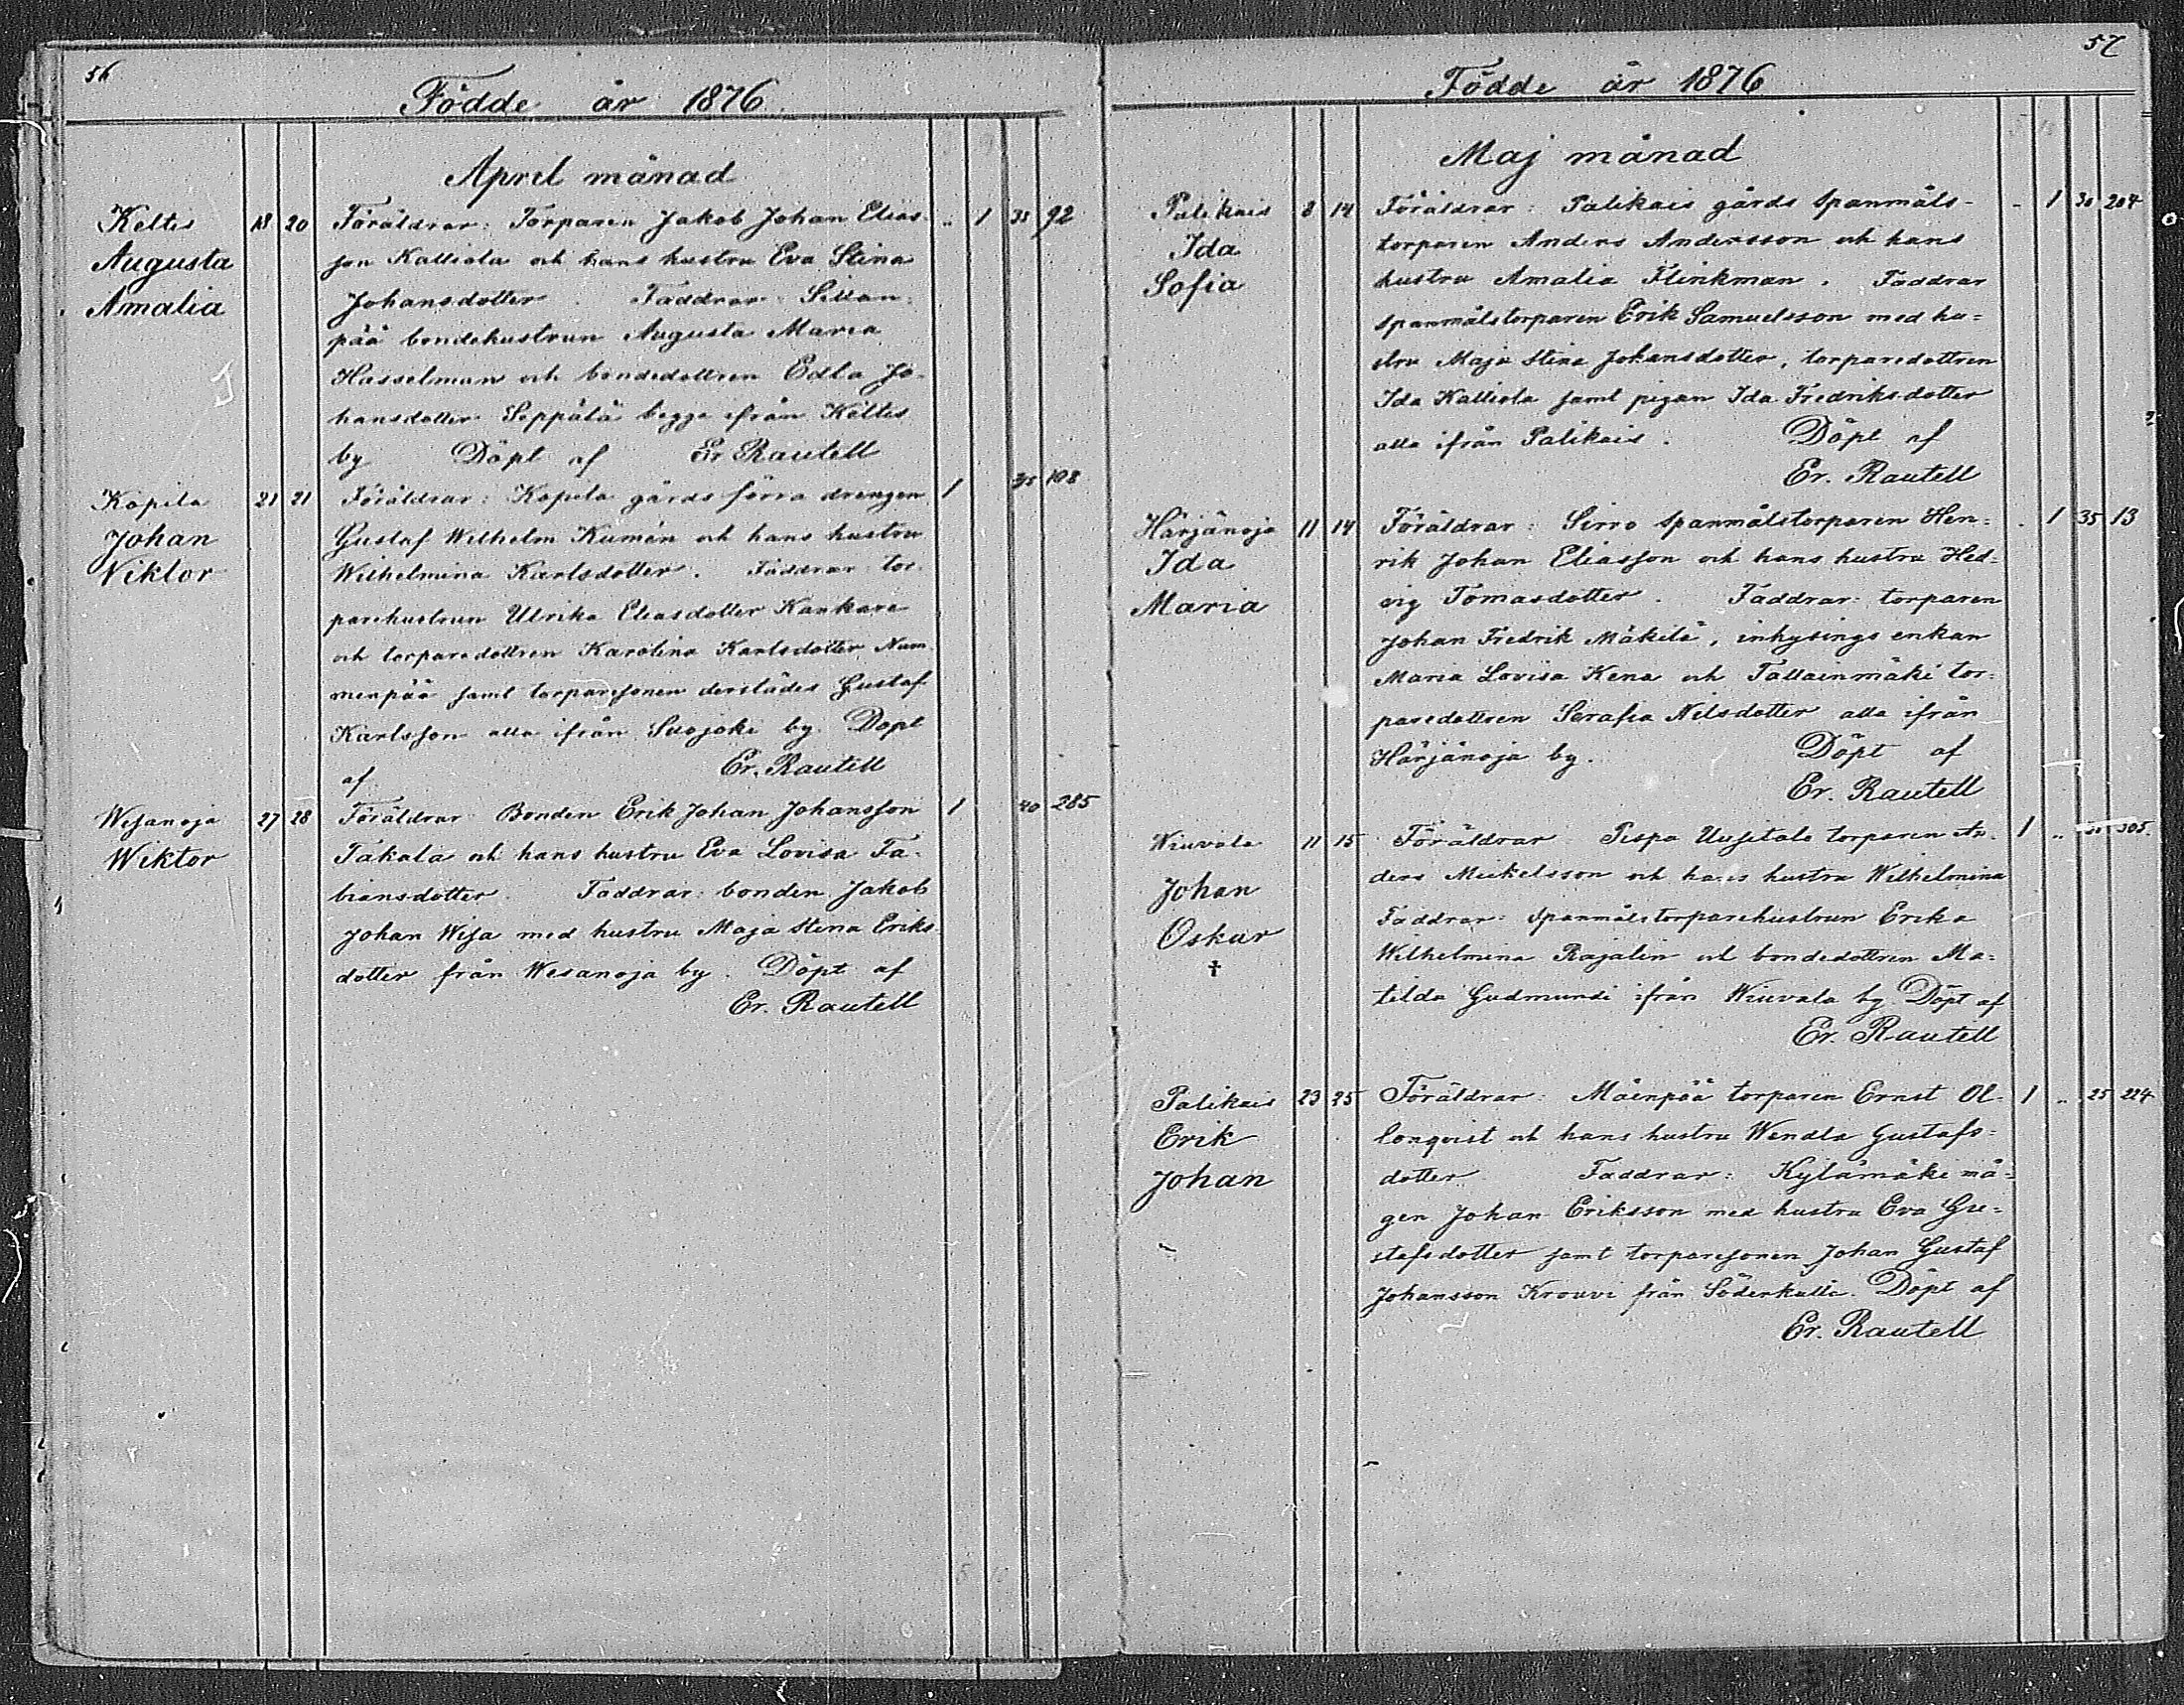 56
Födde år 1876
April månad
Keltis 18 20 Föräldrar: Torparen Jakob Johan Elias- .. 1 35 92
Augusta son Kalliola och hans hustru Eva Stina
Amalia Johansdotter. Faddrar: Sillan-
pää bondehustrun Augusta Maria
Hasselman och bondedottren Edla Jo-
hansdotter Seppälä begge ifrån Keltis
by Döpt af Er Rautell
Kopila 21 21 Föräldrar: Kopila gårds förra drengen 1 35 108
Johan Gustaf Wilhelm Kumén och hans hustru
Viktor Wilhelmina Karlsdotter. Faddrar tor-
parehustrun Ulrika Eliasdotter Kankare
och torparedottren Karolina Karlsdotter Num-
menpää samt torparesonen derstädes Gustaf
Karlsson alla ifrån Suojoki by. Döpt
af Er. Rautell
Wesanoja 27 28 Föräldrar Bonden Erik Johan Johansson 1 40 285
Wiktor Takala och hans hustru Eva Lovisa Fa-
biansdotter. Faddrar: bonden Jakob
Johan Wisa med hustru Maja Stina Eriks-
dotter från Wesanoja by. Döpt af
Er. Rautell
57
Födde år 1876
Maj månad
Palikais 8 14 Föräldrar: Palikais gårds spanmåls- - 1 30 204
Ida torparen Anders Andersson och hans
Sofia hustru Amalia Flinkman. Faddrar
spanmålstorparen Erik Samuelsson med hu-
stru Maja Stina Johansdotter, torparedottren
Ida Kalliola samt pigan Ida Fredriksdotter
alla ifrån Palikais. Döpt af
Er. Rautell
Härjänoja 11 14 Föräldrar: Sirro spanmålstorparen Hen- . 1 35 13
Ida rik Johan Eliasson och hans hustru Hed-
Maria vig Tomasdotter. Faddrar: torparen
Johan Fredrik Mäkilä, inhysings enkan
Maria Lovisa Kena och Tallainmäki tor-
paredottren Serafia Nilsdotter alla ifrån
Härjänoja by. Döpt af
Er. Rautell
Wiuvala 11 15 Föräldrar Pispa Uusitalo torparen An- 1 .. 305.
Johan ders Mickelsson och hans hustru Wilhelmina
Oskar Faddrar: spanmålstorparehustrun Erika
† Wilhelmina Rajalin och bondedottren Ma-
tilda Gudmundi ifrån Wiuvala by. Döpt af
Er. Rautell
Palikais 23 25 Föräldrar: Mäenpää torparen Ernst Ol- 1 .. 25 224
Erik lonqvist och hans hustru Wendla Gustafs-
Johan dotter. Faddrar: Kylämäki må-
gen Johan Eriksson med hustru Eva Gu-
stafsdotter samt torparesonen Johan Gustaf
Johansson Krouvi från Söderkulla. Döpt af
Er. Rautell